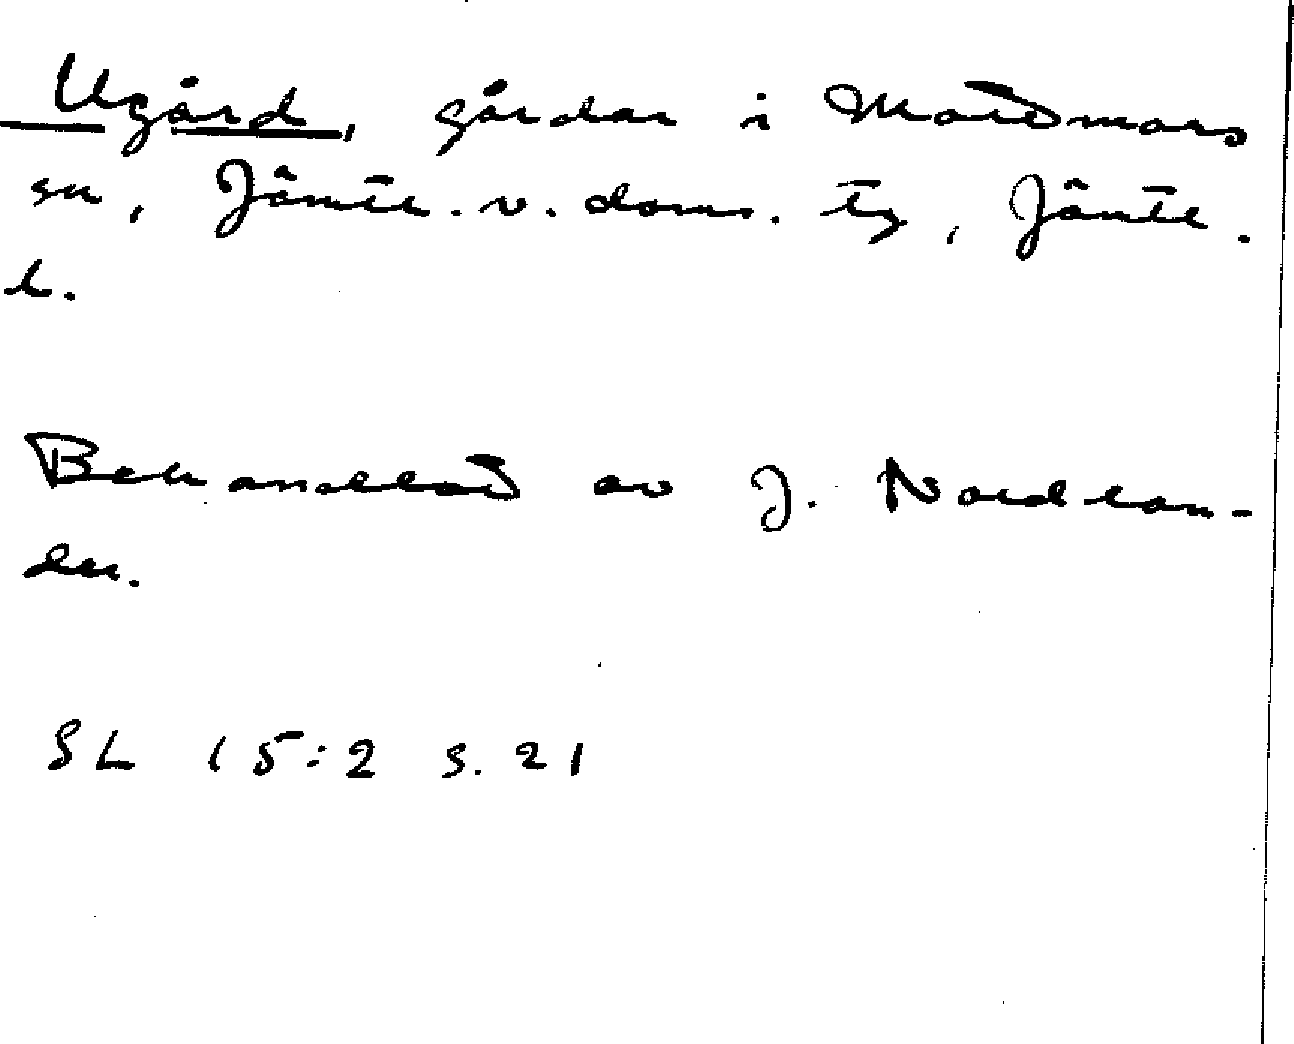 Ugård, gårdar i Mattmars
sn, Jämtl. v. doms. tg, Jämtl.
l.
Behandlat av J. Nordlan-
der.
SL 15:2 s. 21